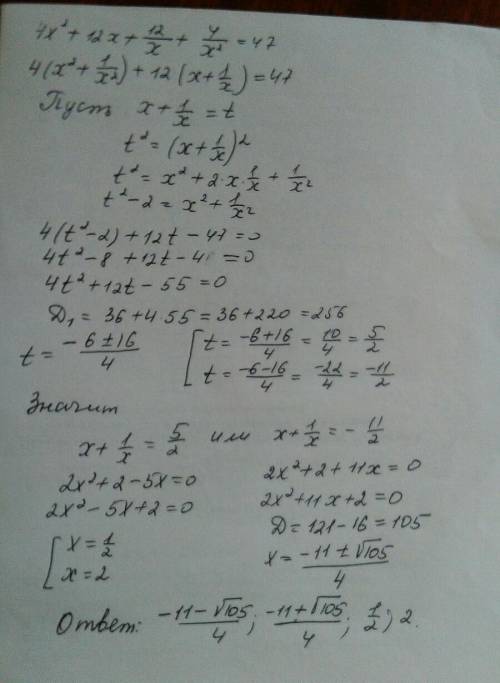 4x² + 12x + 12/x + 4/x² = 47
4(x² + 1/x²) + 12(x + 1/x) = 47
Пусть x + 1/x = t
t² = (x + 1/x)²
t² = x² + 2·x·1/x + 1/x²
t² - 2 = x² + 1/x²
4(t² - 2) + 12t - 47 = 0
4t² - 8 + 12t - 4 = 0
4t² + 12t - 55 = 0
D₁ = 36 + 4·55 = 36 + 220 = 256
t = (-6 ± 16)/4 [ t = (-6+16)/4 = 10/4 = 5/2
t = (-6-16)/4 = -22/4 = -11/2
Значит
x + 1/x = 5/2 или x + 1/x = - 11/2
2x² + 2 - 5x = 0 2x² + 2 + 11x = 0
2x² - 5x + 2 = 0 2x² + 11x + 2 = 0
D = 121 - 16 = 105
[ x = 1/2 x = (-11 ± √105)/4
x = 2
Ответ: (-11 - √105)/4 ; (-11 + √105)/4 ; 1/2 ; 2.